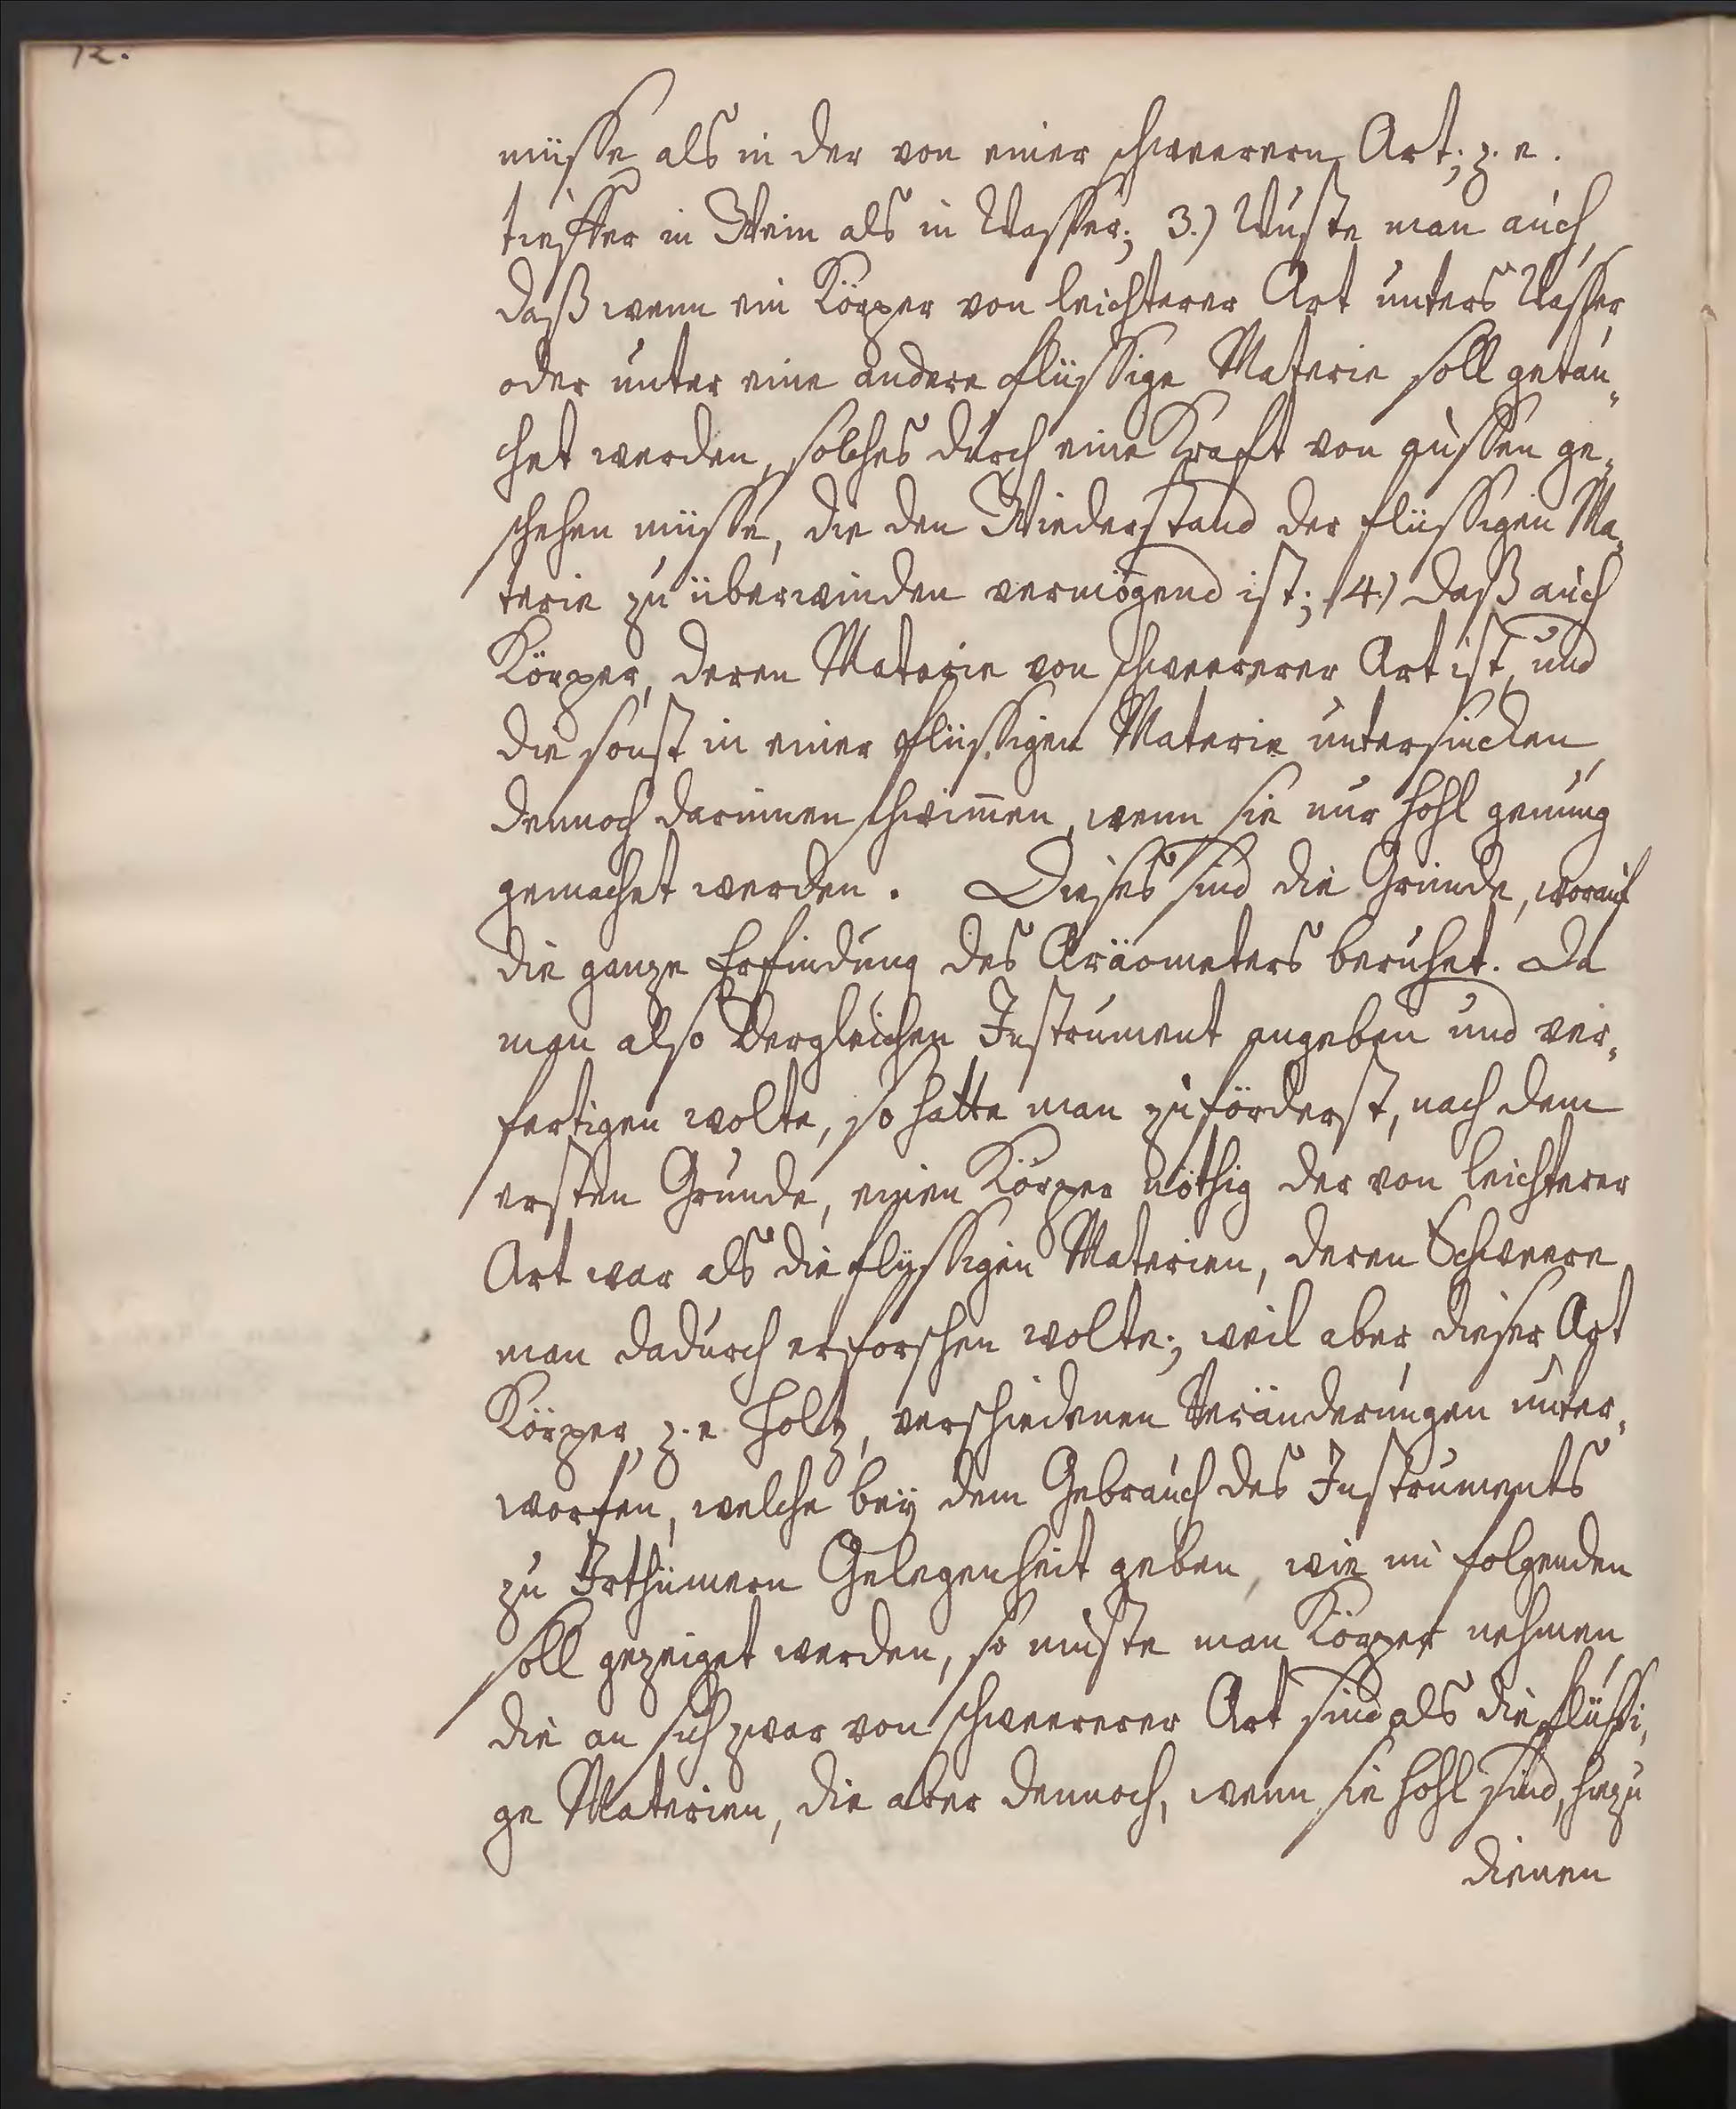 12.
müsse als in der von einer schweerern Art; z. e.
tieffer in Wein als in Wasser; 3.) Wuste man auch,
daß wenn ein Körper von leichterer Art unters Wasser,
oder unter eine andere flüssige Materie soll getau„
chet werden, solches durch eine Kraft von aussen ge„
schehen müsse, die den Wiederstand der flüssigen Ma„
terie zu überwinden vermögend ist; 4.) daß auch
Körper, deren Materie von schweererer Art ist, und
die sonst in einer flüssigen Materie untersincken,
dennoch darinnen schwim̅en, wenn sie nur hohl genung
gemachet werden. Dieses sind die Gründe, worauf
die ganze Erfindung des Aräometers beruhet. Da
man also dergleichen Instrument angeben und ver„
fertigen wolte, so hatte man zuförderst, nach dem
ersten Grunde, einen Körper nöthig der von leichterer
Art war als die flüssigen Materien, deren Schweere
man dadurch erforschen wolte; weil aber dieser Art
Körper, z. e. Holtz, verschiedenen Veränderungen unter„
worfen, welche bey dem Gebrauch des Instruments
zu Irthümern Gelegenheit geben, wie im folgenden
soll gezeiget werden, so muste man Körper nehmen,
die an sich zwar von schweererer Art sind als die flüssi„
ge Materien, die aber dennoch, wenn sie hohl sind, hiezu
dienen